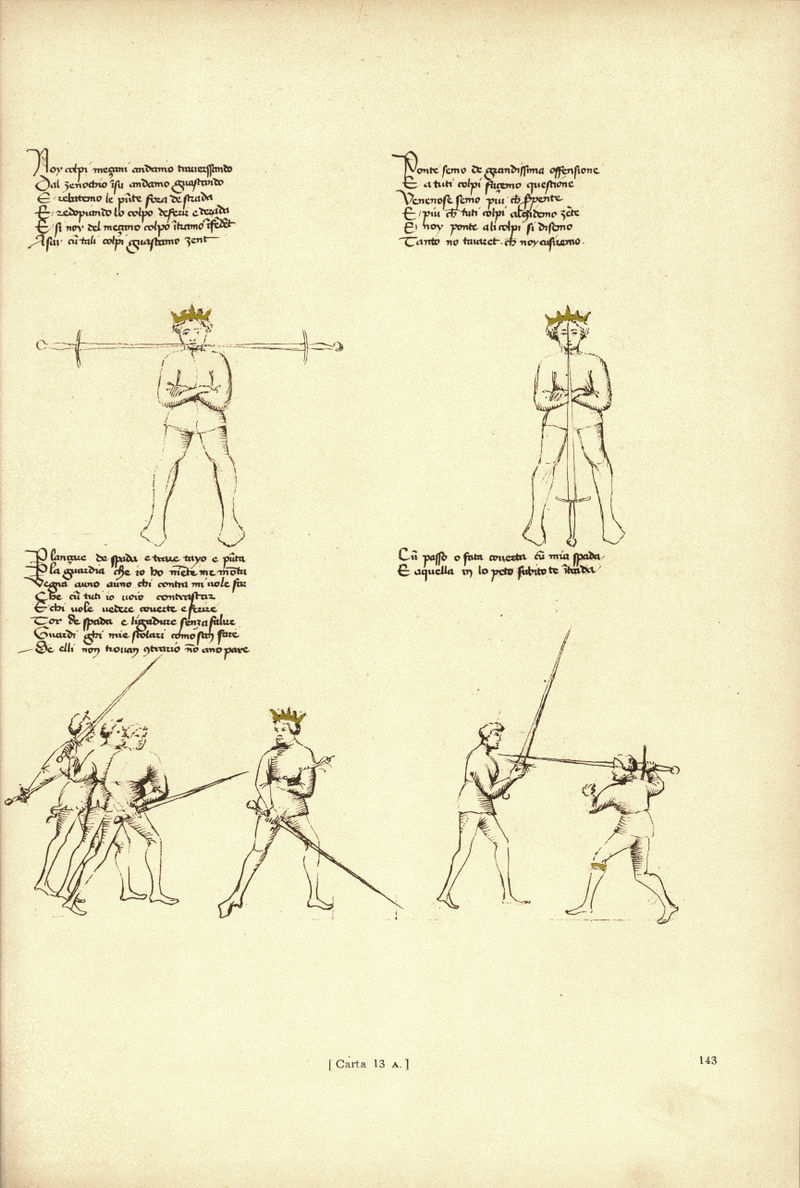 Noy colpi meçani andamo traverssando
Dal zenochio ĩsu andamo guastando
E rebatemo le pũte fora de strada
E redopiando lo colpo de ferir e derada
E si noy del meçano colpo ĩtramo ĩ fēdēt
Asay cũ tali colpi guastamo zent
Ponte semo de grandissima offensione
E a tuti colpi façemo questione
Venenose semo piu ch̄ serpente
E piu ch̄ tuti colpi alçidemo zēte
E noy ponte ali colpi si disemo
Tanto no tavaret ch̄ noy cusiremo.
P lançare de spada e trare tayo e pũta
P la guardia che io ho niēte me mōta
Vegna auno auno chi contra mi vole far
Che cũ tuti io voio contrastar
E chi vole vedere coverte e ferire
Tor de spada e ligadure senza falire
Guardi ghi mie scolari como san fare
De elli non trovan 9trario nō ano pare
Cũ passo o fata coverta cũ mia spada
E aquella in lo peto subito te ītrada
[Carta 13 A.]
143